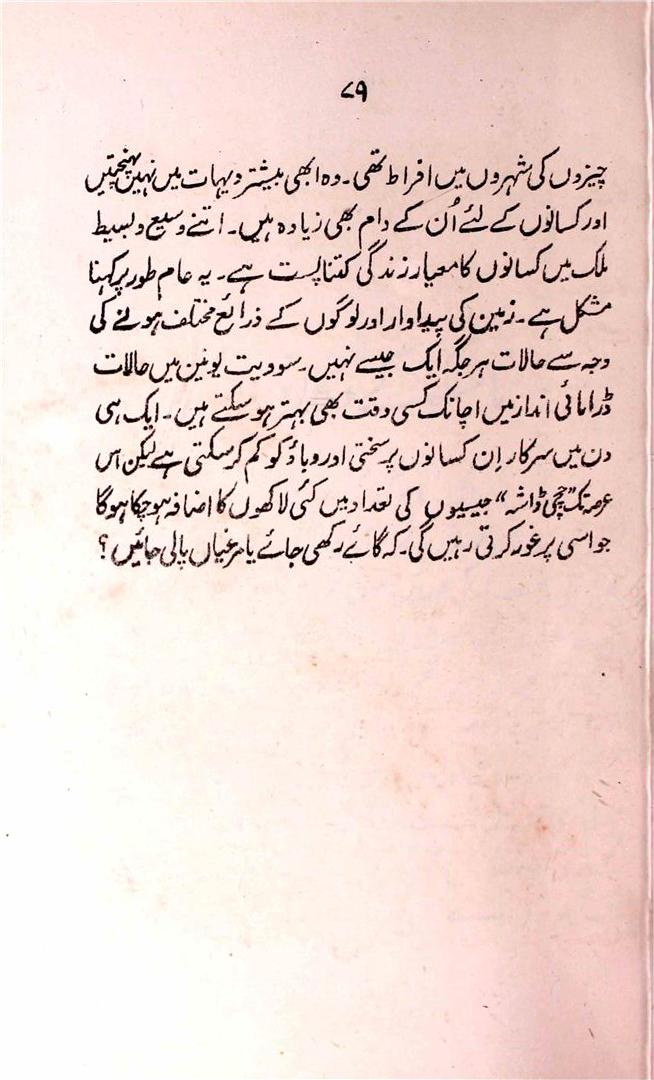 ۷۹
چیزوں کی شہروں میں افراط تھی۔ وہ ابھی بیشتر دیہات میں نہیں پہنچتیں
اور کسانوں کے لئے اُن کے دام بھی زیادہ ہیں۔ اتنے وسیع و بسیط
ملک میں کسانوں کا معیار زندگی کتنا پست ہے۔ یہ عام طور پر کہنا
مشکل ہے۔ زمین کی پیداوار اور لوگوں کے ذرائع مختلف ہونے کی
وجہ سے حالات ہر جگہ ایک جیسے نہیں۔ سوویت یونین میں حالات
ڈرامائی انداز میں اچانک کسی وقت بھی بہتر ہو سکتے ہیں۔ ایک ہی
دن میں سرکار اِن کسانوں پر سختی اور دباؤ کو کم کر سکتی ہے لیکن اس
عرصہ تک "چچی ڈاشہ" جیسیوں کی تعداد میں کئی لاکھوں کا اضافہ ہو چکا ہوگا
جو اسی پر غور کرتی رہیں گی۔ کہ گائے رکھی جائے یا مرغیاں پالی جائیں؟